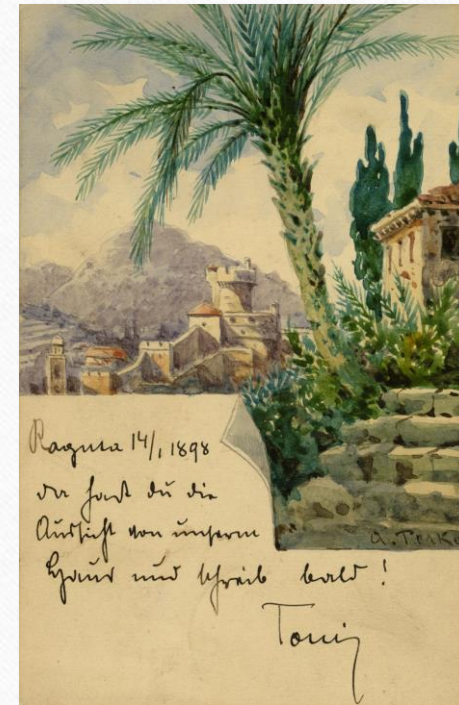 Ragusa 14/1 1898
da hast du die
Aussicht von unserm
Haus und schreib bald!
Toni
A. Perko